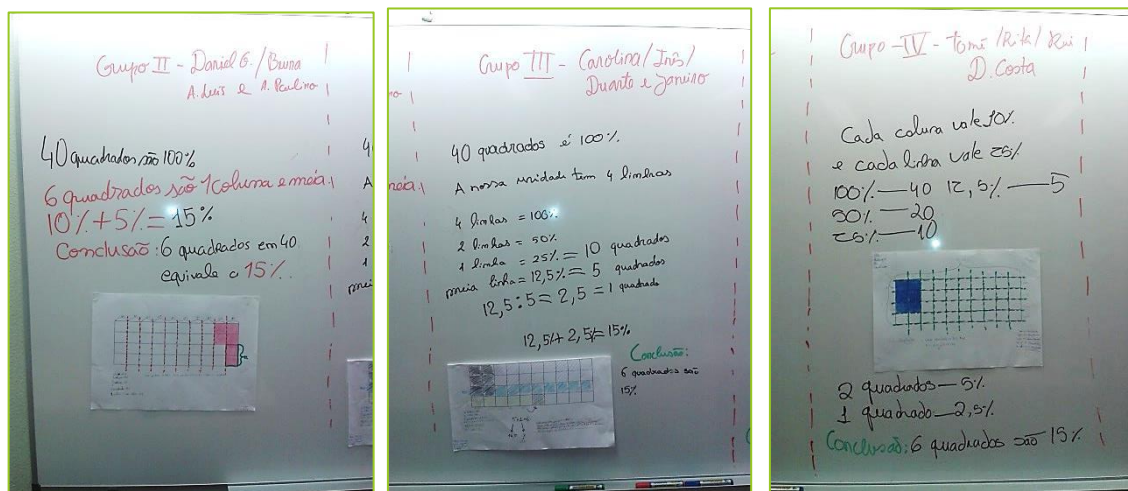 Grupo II - Daniel G. / Bruna
A. Luis e A. Paulino
40 quadrados são 100%
6 quadrados são 1 coluna e meia
10% + 5% = 15%
Conclusão: 6 quadrados em 40
equivale a 15%
Grupo III - Carolina / Inês /
Duarte e Janeiro
40 quadrados é 100%
A nossa unidade tem 4 linhas
4 linhas = 100%
2 linhas = 50%
1 linha = 25% = 10 quadrados
meia linha = 12,5% = 5 quadrados
12,5 : 5 = 2,5 = 1 quadrado
12,5% + 2,5% = 15%
Conclusão:
6 quadrados são
15%
Grupo - IV - Tomé / Rita / Rui
D. Costa
Cada coluna vale 10%
e cada linha vale 25%
100% — 40 12,5% — 5
50% — 20
25% — 10
2 quadrados — 5%
1 quadrado — 2,5%
Conclusão: 6 quadrados são 15%